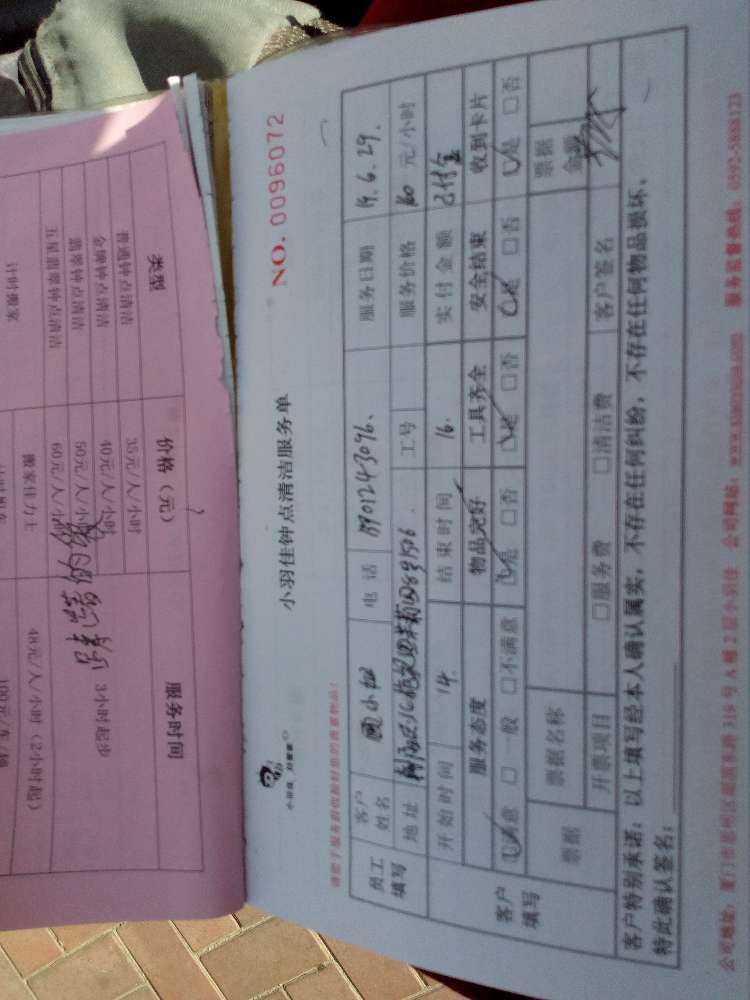 小羽佳钟点清洁服务单
NO. 0096072
小羽佳 好管家
请您于服务前收拾好您的贵重物品!
员工填写 客户姓名 顾小姐 电话 服务日期 19.6.29.
地址 工号 服务价格 元/小时
开始时间 14. 结束时间 16. 实付金额 已付金
客户填写 服务态度 物品完好 工具齐全 安全结束 收到卡片
☑满意 □一般 □不满意 ☑是 □否 ☑是 □否 ☑是 □否 ☑是 □否
票据 票据名称 票据金额
开票项目 □服务费 □清洁费 客户签名
客户特别承诺:以上填写经本人确认属实,不存在任何纠纷,不存在任何物品损坏,
特此确认签名:
公司地址: 319号A幢2层小羽佳 公司网站: 服务监督热线: 0592-5888123
类型 价格(元) 服务时间
普通钟点清洁 35元/人/小时
金牌钟点清洁 40元/人/小时
翡翠钟点清洁 50元/人/小时 3小时起步
五国翡翠钟点清洁 60元/人/小时
计件搬家 搬家佳力士 48元/人/小时(2小时起)
100元/车/辆